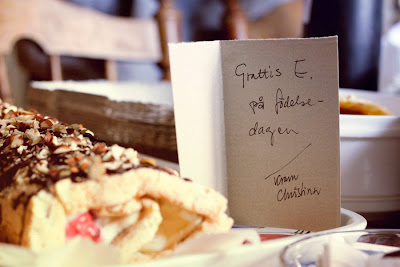 Grattis E.
på födelse-
dagen
Kram
Christina